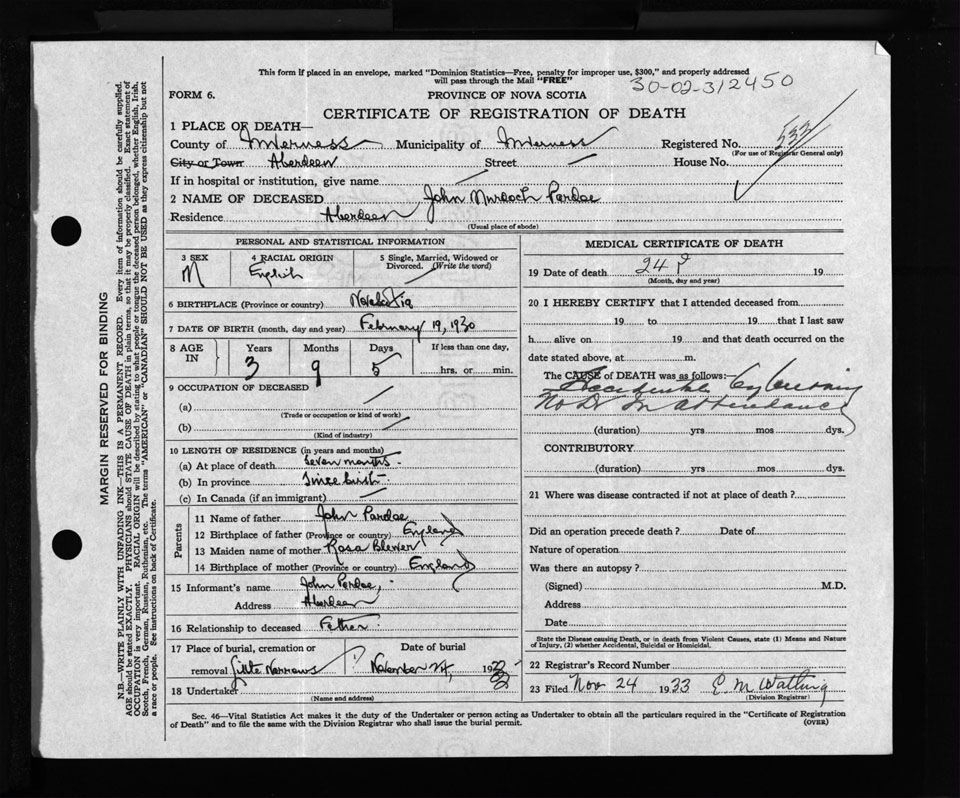 This form if placed in an envelope, marked "Dominion Statistics—Free, penalty for improper use, $300," and properly addressed
will pass through the Mail "FREE"
30-02-312450
FORM 6. PROVINCE OF NOVA SCOTIA
CERTIFICATE OF REGISTRATION OF DEATH
1 PLACE OF DEATH—
County of Inverness Municipality of Inverness Registered No. 533
(For use of Registrar General only)
City or Town Aberdeen Street House No.
If in hospital or institution, give name
2 NAME OF DECEASED John Murdoch Pardoe
Residence Aberdeen
(Usual place of abode)
PERSONAL AND STATISTICAL INFORMATION
3 SEX 4 RACIAL ORIGIN 5 Single, Married, Widowed or
Divorced. (Write the word)
M English
6 BIRTHPLACE (Province or country)
7 DATE OF BIRTH (month, day and year) February 19, 1930
8 AGE IN Years Months Days If less than one day,
3 9 5 hrs. or min.
9 OCCUPATION OF DECEASED
(a)
(Trade or occupation or kind of work)
(b)
(Kind of industry)
10 LENGTH OF RESIDENCE (in years and months)
(a) At place of death Seven months
(b) In province Since birth
(c) In Canada (if an immigrant)
Parents
11 Name of father John Pardoe
12 Birthplace of father (Province or country) England
13 Maiden name of mother Rosa
14 Birthplace of mother (Province or country) England
15 Informant's name John Pardoe,
Address Aberdeen
16 Relationship to deceased Father
17 Place of burial, cremation or Date of burial
removal Little Narrows November 24, 1933
18 Undertaker
(Name and address)
MEDICAL CERTIFICATE OF DEATH
19 Date of death 24 19
(Month, day and year)
20 I HEREBY CERTIFY that I attended deceased from
19 to 19 that I last saw
h alive on 19 and that death occurred on the
date stated above, at m.
The CAUSE of DEATH was as follows:—
Accidental by burning
No Dr in attendance
(duration) yrs mos dys.
CONTRIBUTORY
(duration) yrs mos dys.
21 Where was disease contracted if not at place of death?
Did an operation precede death? Date of
Nature of operation
Was there an autopsy?
(Signed) M.D.
Address
Date
State the Disease causing Death, or in death from Violent Causes, state (1) Means and Nature
of Injury, (2) whether Accidental, Suicidal or Homicidal.
22 Registrar's Record Number
23 Filed Nov 24 1933 E. M. Watling
(Division Registrar)
Sec. 46—Vital Statistics Act makes it the duty of the Undertaker or person acting as Undertaker to obtain all the particulars required in the "Certificate of Registration
of Death" and to file the same with the Division Registrar who shall issue the burial permit. (OVER)
MARGIN RESERVED FOR BINDING
N.B.—WRITE PLAINLY WITH UNFADING INK—THIS IS A PERMANENT RECORD. Every item of information should be carefully supplied.
AGE should be stated EXACTLY. PHYSICIANS should STATE CAUSE OF DEATH in plain terms, so that it may be properly classified. Exact statement of
OCCUPATION is very important. RACIAL ORIGIN will be described by stating to what people or tongue the deceased person belonged, whether English, Irish,
Scotch, French, German, Russian, Ruthenian, etc. The terms "AMERICAN" or "CANADIAN" SHOULD NOT BE USED as they express citizenship but not
a race or people. See instructions on back of Certificate.